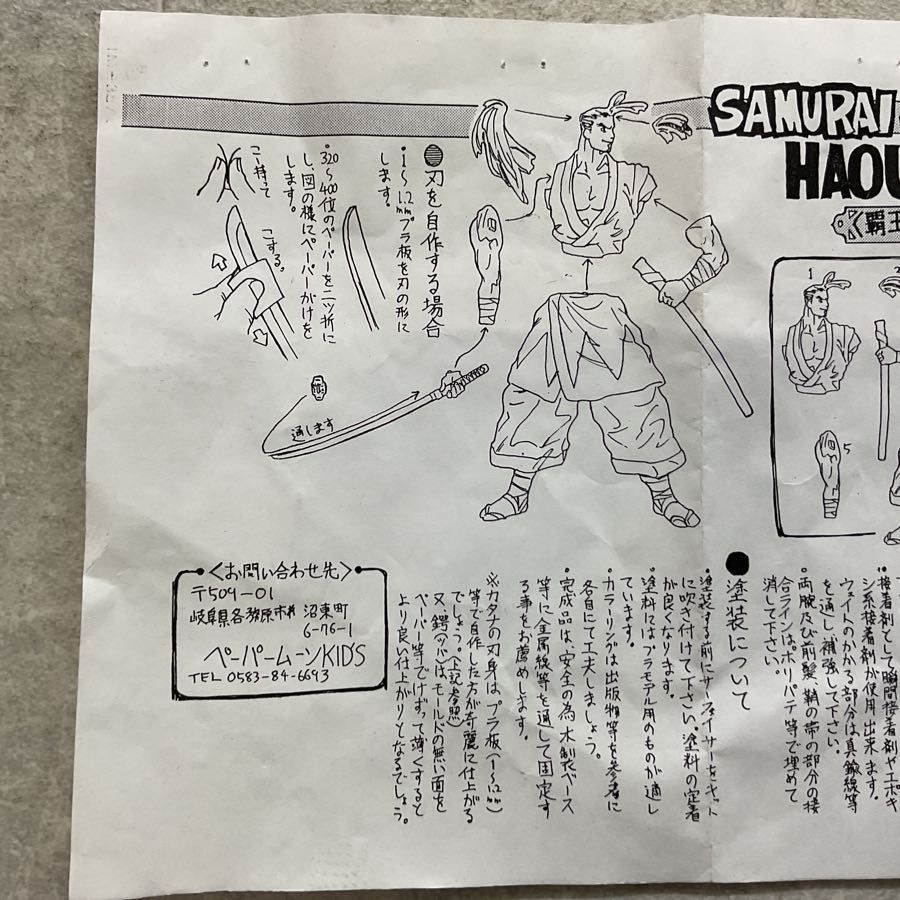 SAMURAI
HAOU
覇王
1
5
●刃を自作する場合
・1〜1.2mmプラ板を刃の形に
します。
・320〜400位のペーパーを二ッ折に
し、図の様にペーパーがけを
します。
こー持て
こする。
通します
接着剤として瞬間接着剤やエポキ
シ系接着剤が使用出来ます。
ウェイトのかかる部分は真鍮線等
を通し、補強して下さい。
・両腕及び前髪、鞘の帯の部分の接
合ラインはポリパテ等で埋めて
消して下さい。
●塗装について
・塗装する前にサーフェイサーをキット
に吹き付けて下さい。塗料の定着
が良くなります。
・塗料にはプラモデル用のものが適し
ています。
・カラーリングは出版物等を参考に
各自にて工夫しましょう。
・完成品は、安全の為、木製ベース
等に金属線等を通して固定す
る事をお薦めします。
※カタナの刃身は、プラ板(1〜1.2mm)
等で自作した方が奇麗に仕上がる
でしょう。(上記参照)
又、鍔(ツバ)は、モールドの無い面を
ペーパー等でけずって薄くすると
より良い仕上がりとなるでしょう。
<お問い合わせ先>
〒509-01
岐阜県各務原市鵜沼東町
6-76-1
ペーパームーンKID'S
TEL 0583-84-6693